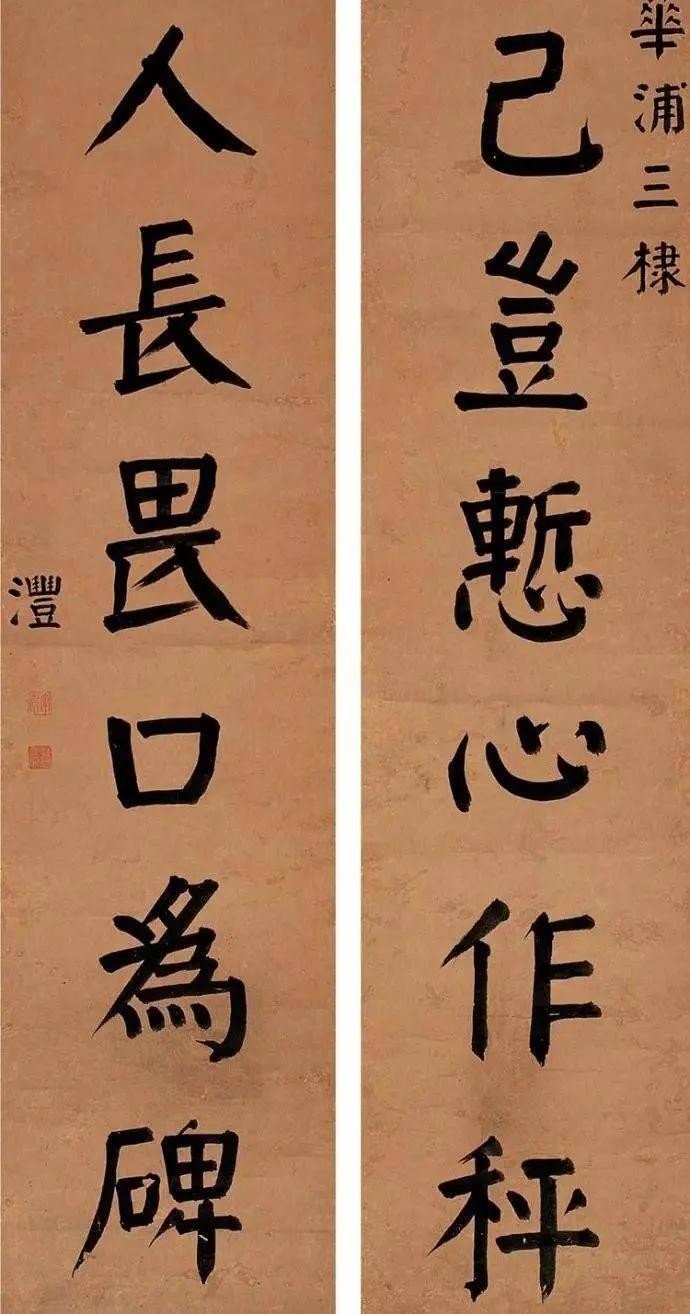 華浦三棣
己豈慙心作秤
人長畏口為碑
灃